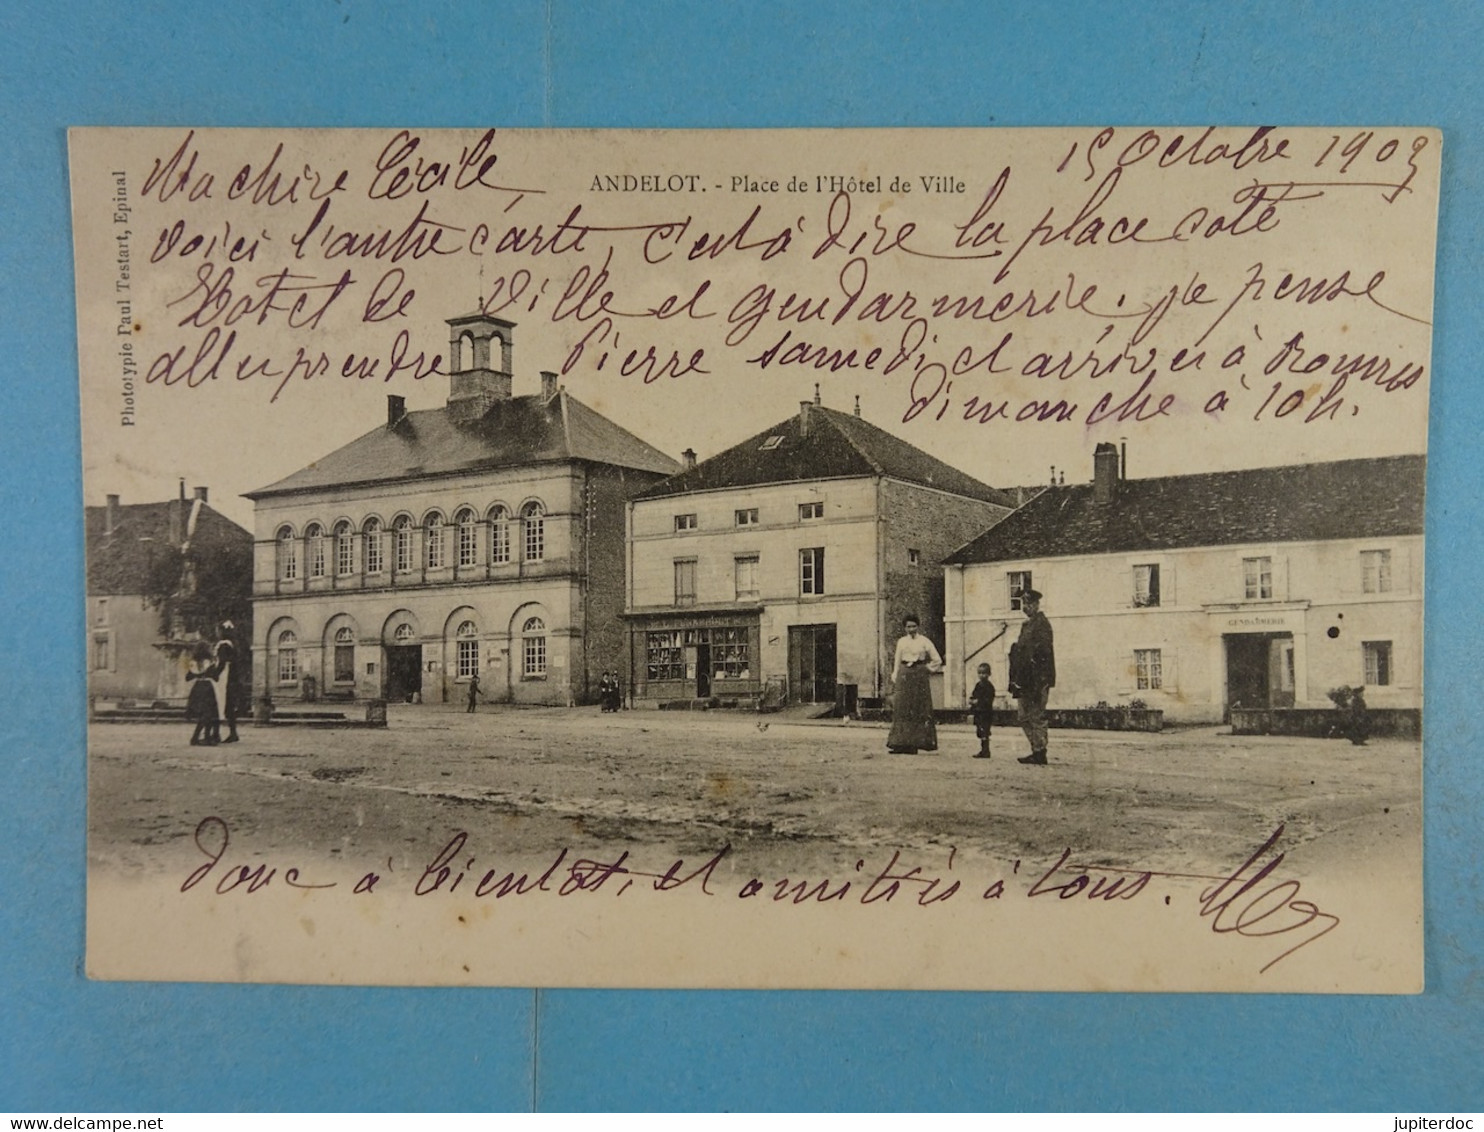 15 Octobre 1903
Ma chère Cécile,
ANDELOT. - Place de l'Hôtel de Ville
voici l'autre carte, c'est à dire la place côté
Hotel de Ville et gendarmerie. je pense
aller prendre Pierre samedi et arriver à
dimanche à 10h.
Phototypie Paul Testart, Epinal
GENDARMERIE
donc à bientôt, et amitiés à tous.
jupiterdoc